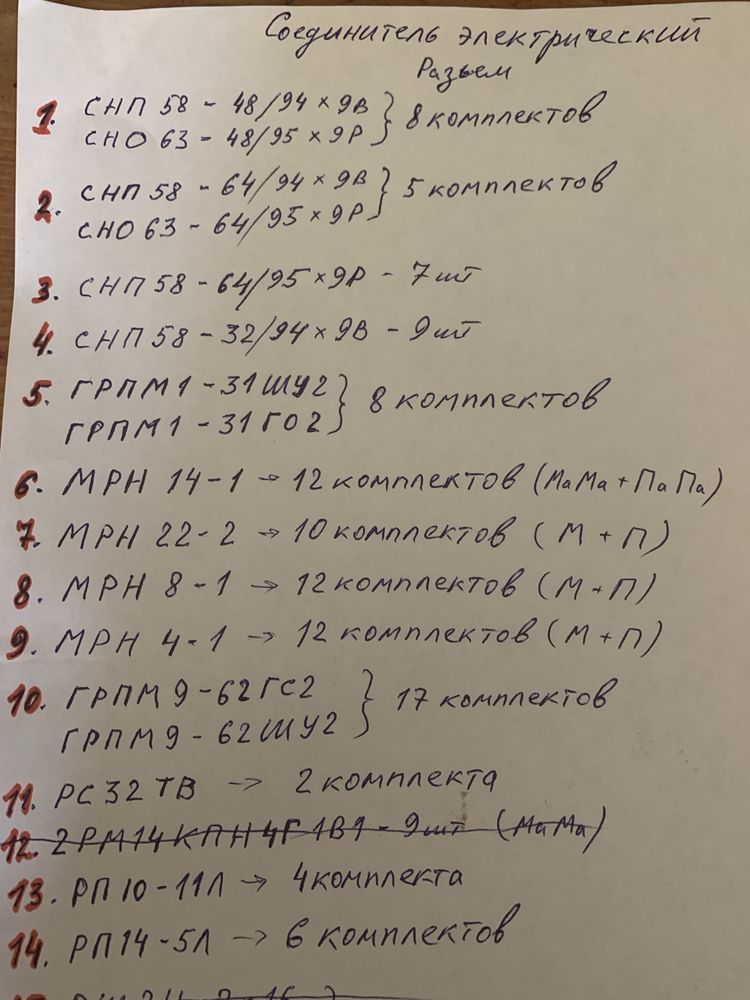 Соединитель электрический
Разъем
1. СНП 58 - 48/94 × 9В } 8 комплектов
СНО 63 - 48/95 × 9Р
2. СНП 58 - 64/94 × 9В } 5 комплектов
СНО 63 - 64/95 × 9Р
3. СНП 58 - 64/95 × 9Р - 7 шт
4. СНП 58 - 32/94 × 9В - 9 шт
5. ГРПМ1 - 31ШУ2 } 8 комплектов
ГРПМ1 - 31ГО2
6. МРН 14-1 → 12 комплектов (МаМа + ПаПа)
7. МРН 22-2 → 10 комплектов (М + П)
8. МРН 8-1 → 12 комплектов (М + П)
9. МРН 4-1 → 12 комплектов (М + П)
10. ГРПМ9-62ГС2 } 17 комплектов
ГРПМ9-62ШУ2
11. РС32ТВ → 2 комплекта
12. 2РМ14КПН4Г1В1 - 9 шт (МаМа)
13. РП10-11Л → 4 комплекта
14. РП14-5Л → 6 комплектов